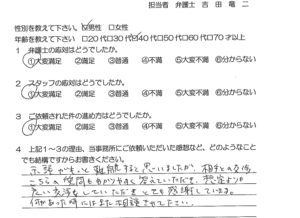 担当者 弁護士 吉田竜二
性別を教えて下さい。☑男性 □女性
年齢を教えて下さい □20代□30代☑40代□50代□60代□70才以上
1 弁護士の応対はどうでしたか。
①大変満足 ②満足 ③普通 ④不満 ⑤大変不満 ⑥分からない
2 スタッフの応対はどうでしたか。
①大変満足 ②満足 ③普通 ④不満 ⑤大変不満 ⑥分からない
3 ご依頼された件の進め方はどうでしたか。
①大変満足 ②満足 ③普通 ④不満 ⑤大変不満 ⑥分からない
4 上記1~3の理由、当事務所にご依頼いただいた感想など、どのようなこと
でも結構ですからお書きください。
示談がもっと難航すると思いましたが、相手との交渉、
こちらの質問も分かりやすく答えていただき、想定より
良い
していただき、とても感謝しています。
何かあった時にはまた相談させて下さい。